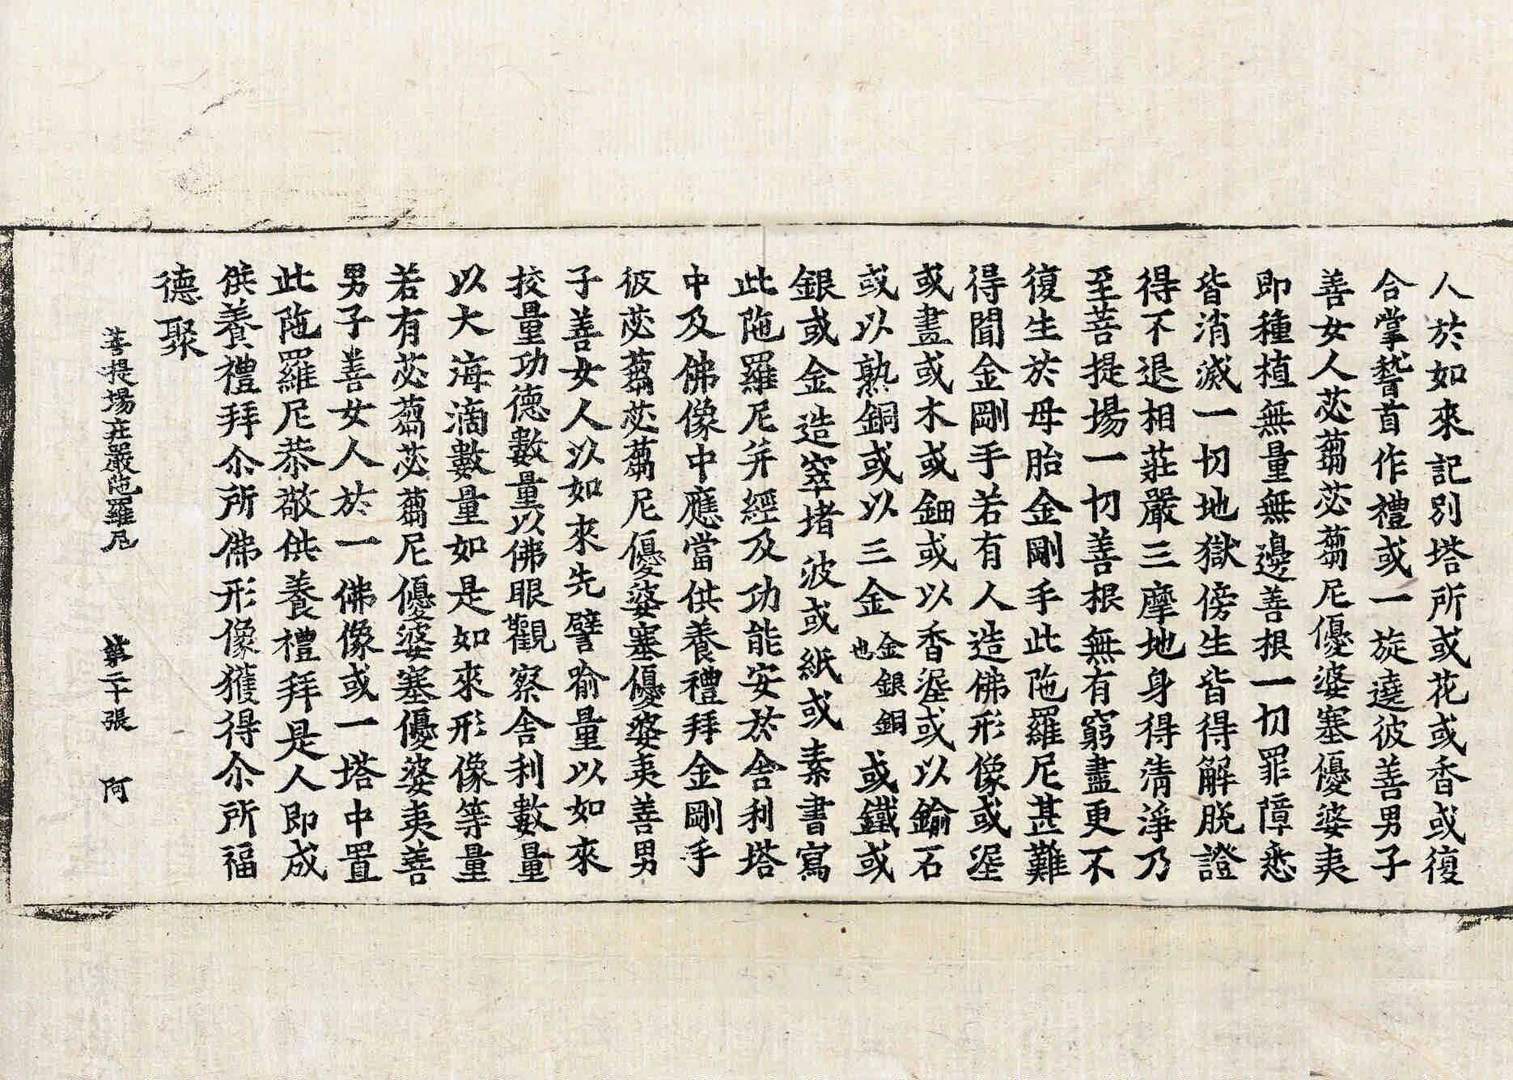 人於如來記別塔所或花或香或復
合掌䭫首作禮或一旋遶彼善男子
善女人苾蒭苾蒭尼優婆塞優婆夷
即種植無量無邊善根一切罪障悉
皆消滅一切地獄傍生皆得解脫證
得不退相莊嚴三摩地身得清淨乃
至菩提場一切善根無有窮盡更不
復生於母胎金剛手此陁羅尼甚難
得聞金剛手若有人造佛形像或埿
或畫或木或鈿或以香埿或以鍮石
或以熟銅或以三金金銀銅也或鐵或
銀或金造窣堵波或紙或素書寫
此陁羅尼并經及功能安於舍利塔
中及佛像中應當供養禮拜金剛手
彼苾蒭苾蒭尼優婆塞優婆夷善男
子善女人以如來先譬喻量以如來
挍量功德數量以佛眼觀察舍利數量
以大海滴數量如是如來形像等量
若有苾蒭苾蒭尼優婆塞優婆夷善
男子善女人於一佛像或一塔中置
此陁羅尼恭敬供養禮拜是人即成
供養禮拜尒所佛形像獲得尒所福
德聚
菩提場莊嚴陁羅尼 第二十張 阿